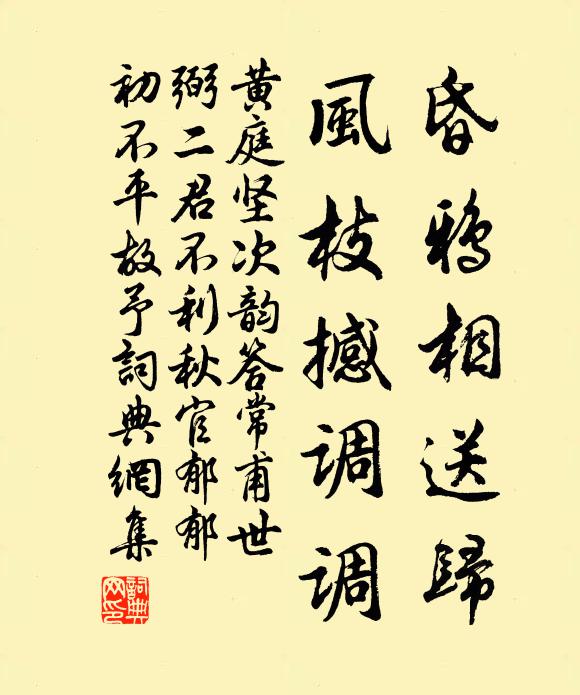 昏鸦相送歸
風枝撼调调
黄庭坚次韵答常甫世
弼二君不利秋官郁郁
初不平故予詞典網集
詞典
网印